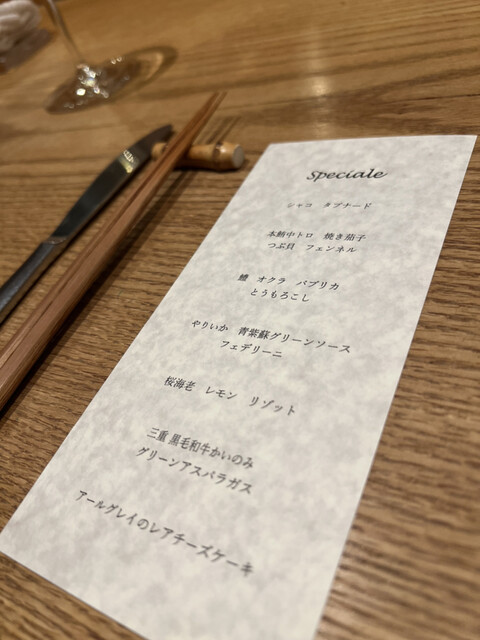 Speciale
シャコ　タプナード
本鮪中トロ　焼き茄子
つぶ貝　フェンネル
鱧　オクラ　パプリカ
とうもろこし
やりいか　青紫蘇グリーンソース
フェデリーニ
桜海老　レモン　リゾット
三重 黒毛和牛かいのみ
グリーンアスパラガス
アールグレイのレアチーズケーキ